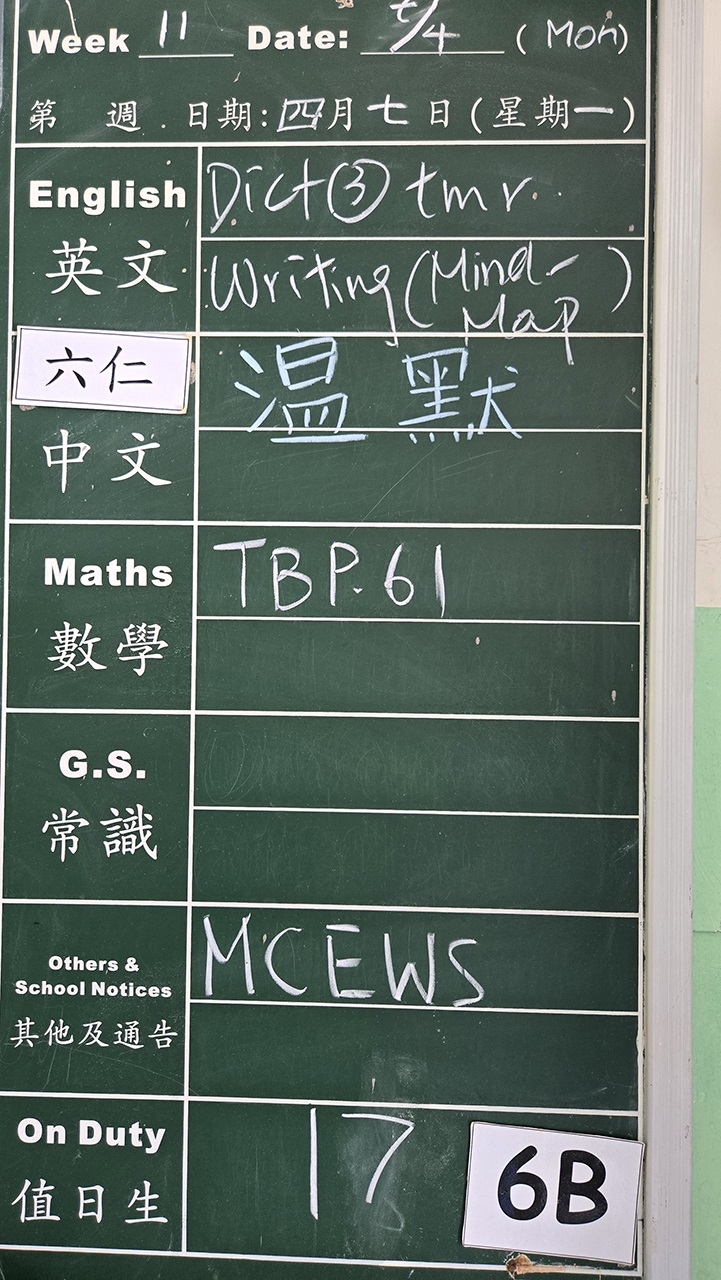 Week 11 Date: 7/4 (Mon)
第 週 . 日期: 四月七日 (星期一)
English
英文
Dict ③ tmr.
Writing (Mind-
Map)
六仁
中文
溫默
Maths
數學
TBP.61
G.S.
常識
Others &
School Notices
其他及通告
MCEWS
On Duty
值日生
17
6B